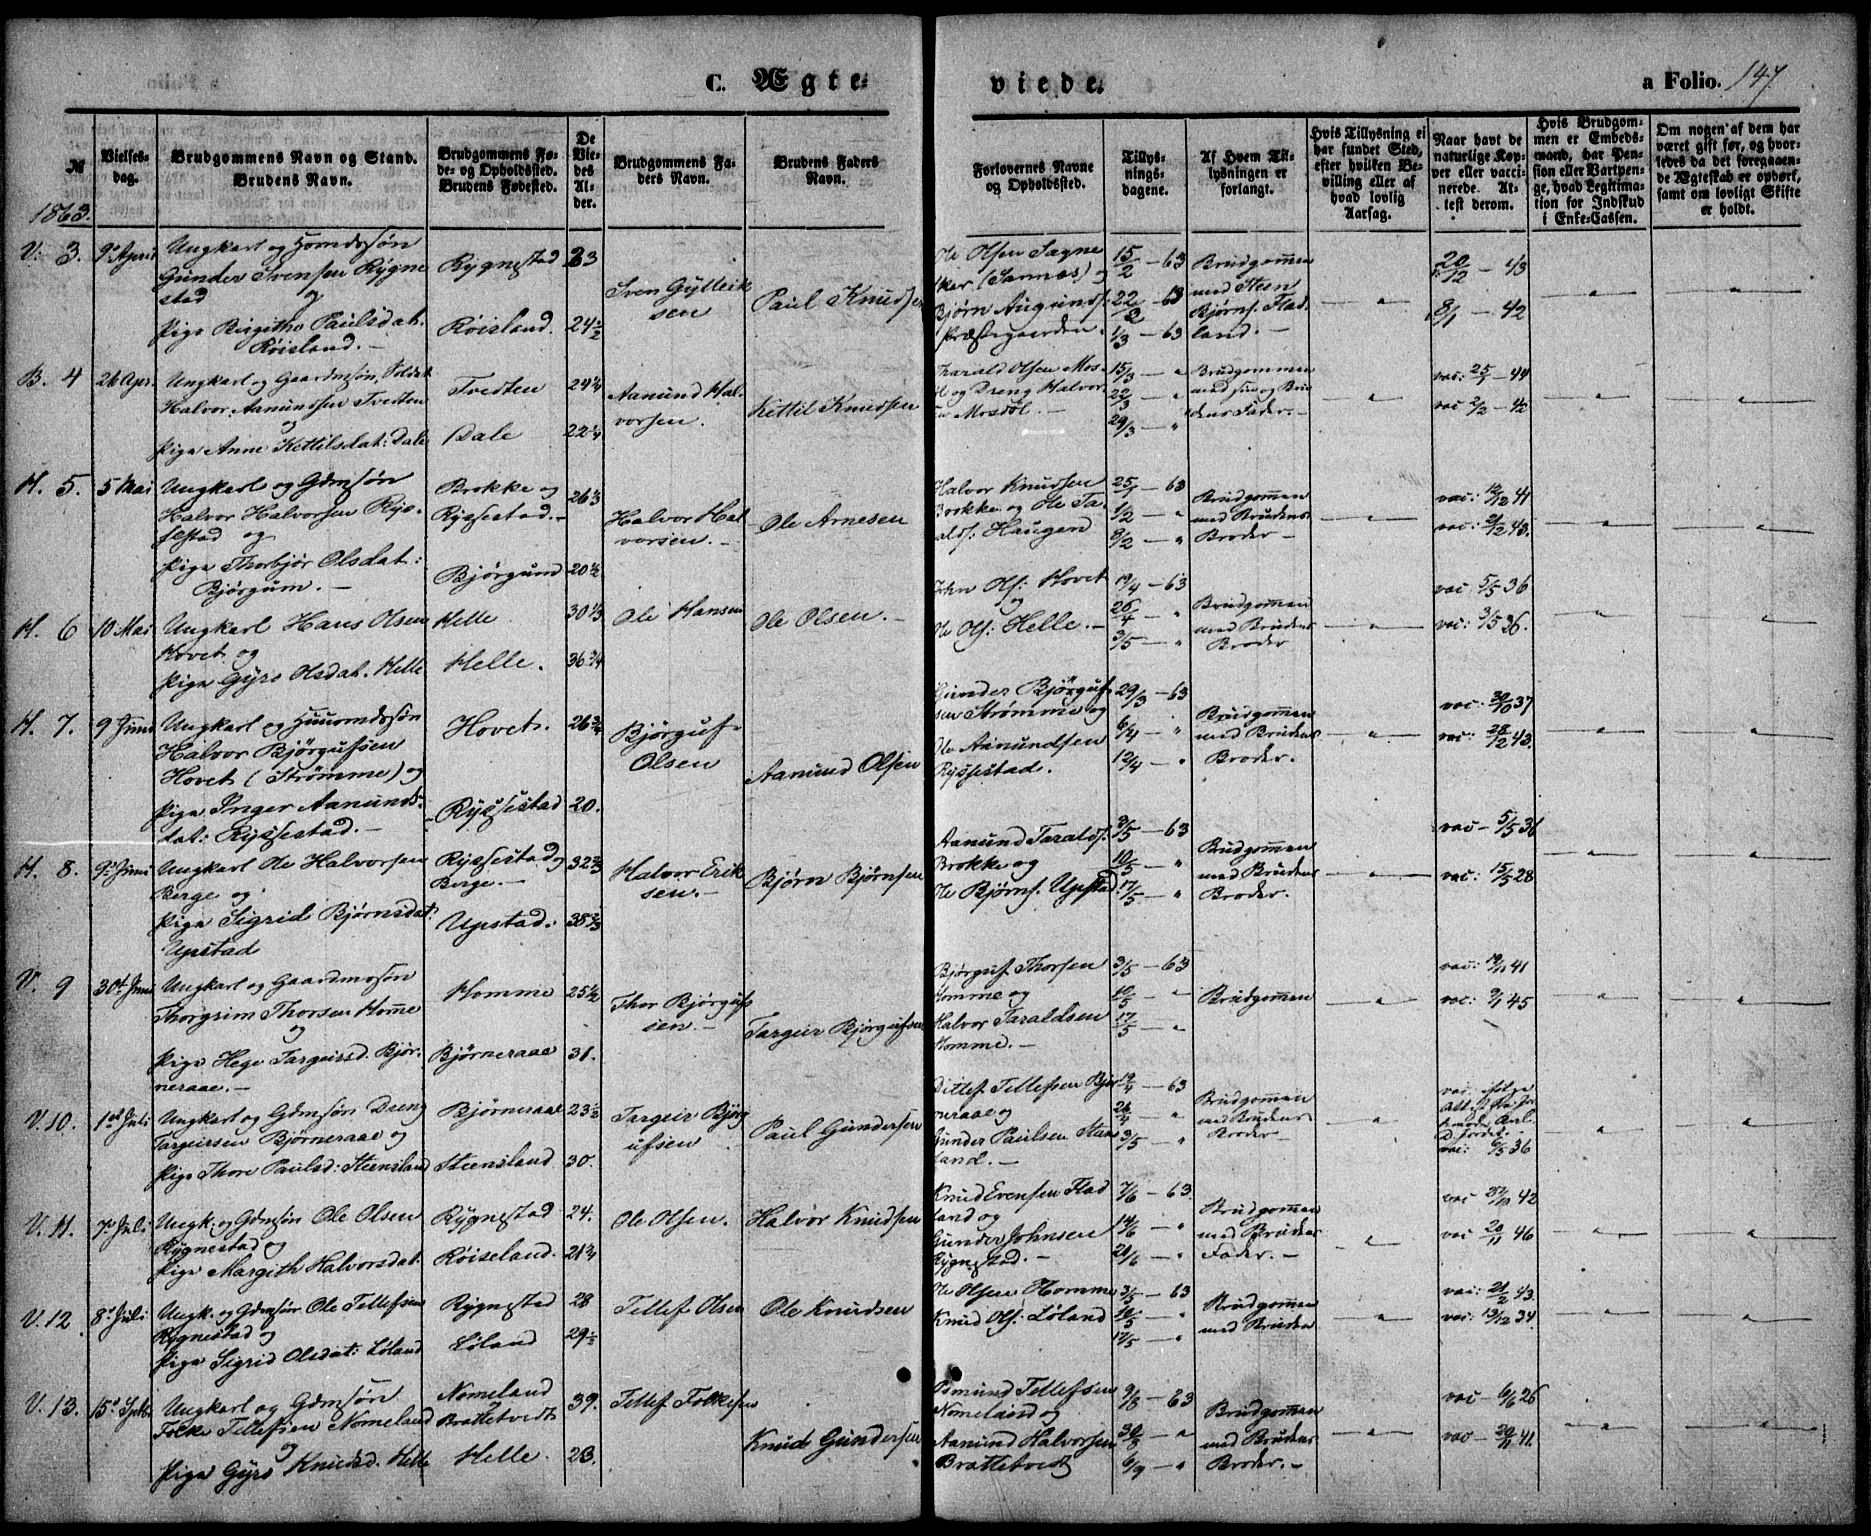 C. Ægte
viede.
a Folio. 147
№
Vielses-
dag.
Brudgommens Navn og Stand.
Brudens Navn.
Brudgommens Fø-
de- og Opholdssted.
Brudens Fødested.
De
Vie-
des
Al-
der.
Brudgommens Fa-
ders Navn.
Brudens Faders
Navn.
Forlovernes Navne
og Opholdssted.
Tillys-
nings-
dagene.
Af Hvem Til-
lysningen er
forlangt.
Hvis Tillysning ei
har fundet Sted,
efter hvilken Be-
villing eller af
hvad lovlig
Aarsag.
Naar havt de
naturlige Kop-
per eller vacci-
nerede. At-
test derom.
Hvis Brudgom-
men er Embeds-
mand, har Pen-
sion eller Vartpen-
ge, hvad Legitima-
tion for Indskud
i Enke-Cassen.
Om nogen af dem har
været gift før, og hvor-
ledes da det foregaaen-
de Ægteskab er ophørt,
samt om lovligt Skifte
er holdt.
1863.
V. 3. 9de April
Ungkarl og
Gunder Svensen Rygne
stad
og
Pige Birgithe Paulsdat.
Røisland. —
Rygnestad
Røisland.
23
24½
Sven Gytleik
sen
Paul Knudsen
Ole Olsen
Bjørn Augunds.
Præstegaarden.
15/2 — 63
22/2 — 63
1/3 — 63
Brudgommen
med Steen
Bjørns. Flad
land. —
20/12 — 43
8/1 — 42
B. 4 26 Apr.
Ungkarl og Gaardmsøn, Soldat
Halvor Aanundsen Tvedten
og
Pige Anne Kettilsdat: Dale
Tvedten
Dale
24¼
22¼
Aanund Hal-
vorsen.
Kettil Knudsen
Tharald Olsen Mos-
og Dreng Halvor
Mosdøl. —
15/3 — "
22/3 — "
29/3 — "
Brudgommen
med
dens Fader. —
vac: 25/1 — 44
vac 2/2 — 42
H. 5. 5 Mai
Ungkarl og Gdmsøn
Halvor Halvorsen Rys-
sestad og
Pige Thorbjør Olsdat:
Bjørgum. —
Brokke og
Ryssestad. —
Bjørgund
26⅓
20½
Halvor Hal
vorsen. —
Ole Arnesen
Halvor Knudsen
Brokke og Ole Ta-
alds: Haugen
25/1 — 63
1/2 — "
8/2 — "
Brudgommen
med Brudens
Broder —
vac: 12/12 41
vac: 21/12 43.
H. 6 10 Mai
Ungkarl Hans Olsen
Hovet og
Pige Gyro Olsdat. Helle
Helle
Helle.
30⅓
36¾
Ole Hansen
Ole Olsen. —
John Ols: Hovet
og
Ole Ols: Helle. —
19/4 — 63
26/4 — "
3/5 — "
Brudgommen
med Brudens
Broder
vac 5/5 36
vac: 3/5 36.
H. 7. 9 Juni
Ungkarl og
Halvor Bjørgufsen
Hovet (Strømme) og
Pige Inger Aanunds-
dat: Ryssestad. —
Hovet.
Ryssestad
26¾
20.
Bjørguf
Olsen
Aanund Olsen
Gunder Bjørguf-
sen Strømme og
Ole Aanundsen
Ryssestad.
29/3 — 63
6/4 — "
12/4 — "
Brudgommen
med Brudens
Broder.
vac: 30/10 37
vac: 28/12 43.
H. 8. 9de Juni
Ungkarl Ole Halvorsen
Berge og
Pige Sigrid Bjørnsdat:
Upstad
Ryssestad og
Berge. —
Upstad.
32⅔
35⅔
Halvor Erik
sen. —
Bjørn Bjørnsen
Aanund Taralds.
Brokke og
Ole Bjørns. Upstad.
3/5 — 63
10/5 — "
17/5 — "
Brudgommen
med Brudens
Broder.
vac — 5/5 36
vac: 15/5 28
V. 9 30te Juni
Ungkarl og Gaardmsøn
Thorgrim Thorsen Homme
og
Pige Hege Targeirsd. Bjør-
neraae. —
Homme
Bjørneraae
25½
31.
Thor Bjørguf
sen. —
Targeir Bjørgufsen
Bjørguf Thorsen
Homme og
Halvor Taraldsen
Homme. —
3/5 — 63
10/5 — "
17/5 — "
Brudgommen
vac: 19/11 41
vac: 9/1 45
V. 10. 1ste Juli
Ungkarl og Gdmsøn Dreng
Targeirsen Bjørneraae og
Pige Thore Paulsd: Steensland
Bjørneraae
Steensland
23½
30.
Targeir Bjørg
ufsen
Paul Gundersen
Ditlef Tellefsen Bjør
neraae og
Gunder Paulsen Steens
land. —
19/4 — 63
26/4 — "
3/5 — "
Brudgommen
med Brudens
Broder —
vac: 6/5 36
V. 11. 7de Juli
Ungk. og Gdmsøn Ole Olsen
Rygnestad og
Pige Margith Halvorsdat.
Rygnestad
Røiseland.
24.
21¼
Ole Olsen.
Halvor Knudsen
Knud Evensen Flad
land og
Gunder Johnsen
Rygnestad. —
7/6 — 63.
14/6 — "
21/6 — "
Brudgommen
med Brudens
Fader. —
vac 27/10 42
vac 20/11 46
V. 12 8de Juli
Ungk. og Gdmsøn Ole Tellefsen
Rygnestad og
Pige Sigrid Olsdat: Løland
Rygnestad
Løland
28
29½
Tellef Olsen
Ole Knudsen
Ole Olsen Homme
Knud Ols: Løland
3/5 — 63
10/5 — "
17/5 — "
Brudgommen
med Bruden
vac: 21/2 43.
vac: 13/12 34.
V. 13. 15de Septbr
Ungkarl og Gdmsøn
Folke Tellefsen Nomeland
og
Pige Gyro Knudsd. Helle
Nomeland
og
Brattetvedt
Helle.
39.
23.
Tellef Folkesen
Knud Gundersen
Osmund Tellefsen
Nomeland og
Aanund Halvorsen
Brattetvedt
9/8 — 63
30/8 — "
6/9 — "
Brudgommen
med Brudens
Broder. —
vac — 6/6 26
vac — 20/11 41.